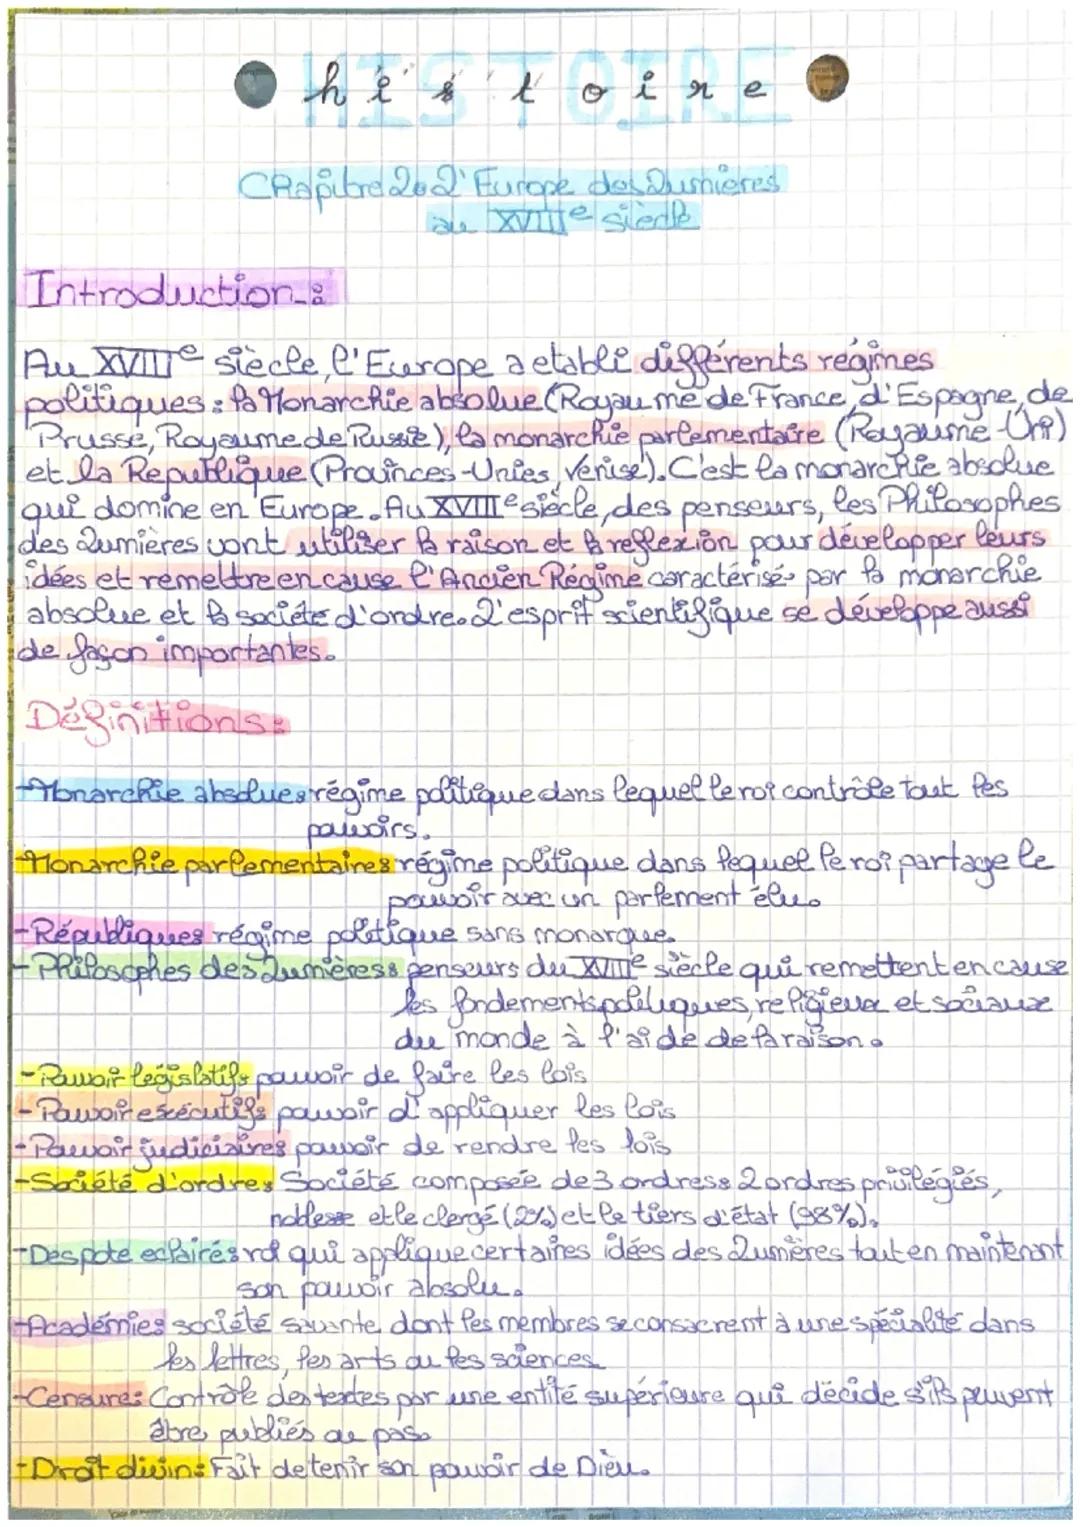 HISTOIRE
histoire
Chapitre 2: L'Europe des Lumières
au XVIIIe siècle
Introduction :
Au XVIIIe siècle, l'Europe a etabli différents régimes
politiques : la Monarchie absolue (Royaume de France, d'Espagne, de
Prusse, Royaume de Russie), la monarchie parlementaire (Royaume-Uni)
et la Republique (Provinces-Unies, Venise). C'est la monarchie absolue
qui domine en Europe. Au XVIIIe siècle, des penseurs, les Philosophes
des Lumières vont utiliser la raison et la reflexion pour développer leurs
idées et remettre en cause l'Ancien Régime caractérisé par la monarchie
absolue et la société d'ordre. L'esprit scientifique se développe aussi
de façon importantes.
Définitions :
-Monarchie absolue: régime politique dans lequel le roi contrôle tout les
pouvoirs.
-Monarchie parlementaire: régime politique dans lequel le roi partage le
pouvoir avec un parlement élu.
-République: régime politique sans monarque.
-Philosophes des Lumières: penseurs du XVIIIe siècle qui remettent en cause
les fondements politiques, religieux et sociaux
du monde à l'aide de la raison.
-Pouvoir législatif: pouvoir de faire les lois
-Pouvoir exécutif: pouvoir d'appliquer les lois
-Pouvoir judiciaire: pouvoir de rendre les lois
-Société d'ordre: Société composée de 3 ordres: 2 ordres privilégiés,
noblesse et le clergé (2%) et le tiers d'état (98%).
-Despote eclairé: roi qui applique certaines idées des Lumières tout en maintenant
son pouvoir absolu.
-Académie: société savante dont les membres se consacrent à une spécialité dans
les lettres, les arts ou les sciences
-Censure: Contrôle des textes par une entité supérieure qui décide s'ils peuvent
être publiés ou pas.
-Droit divin: Fait de tenir son pouvoir de Dieu.